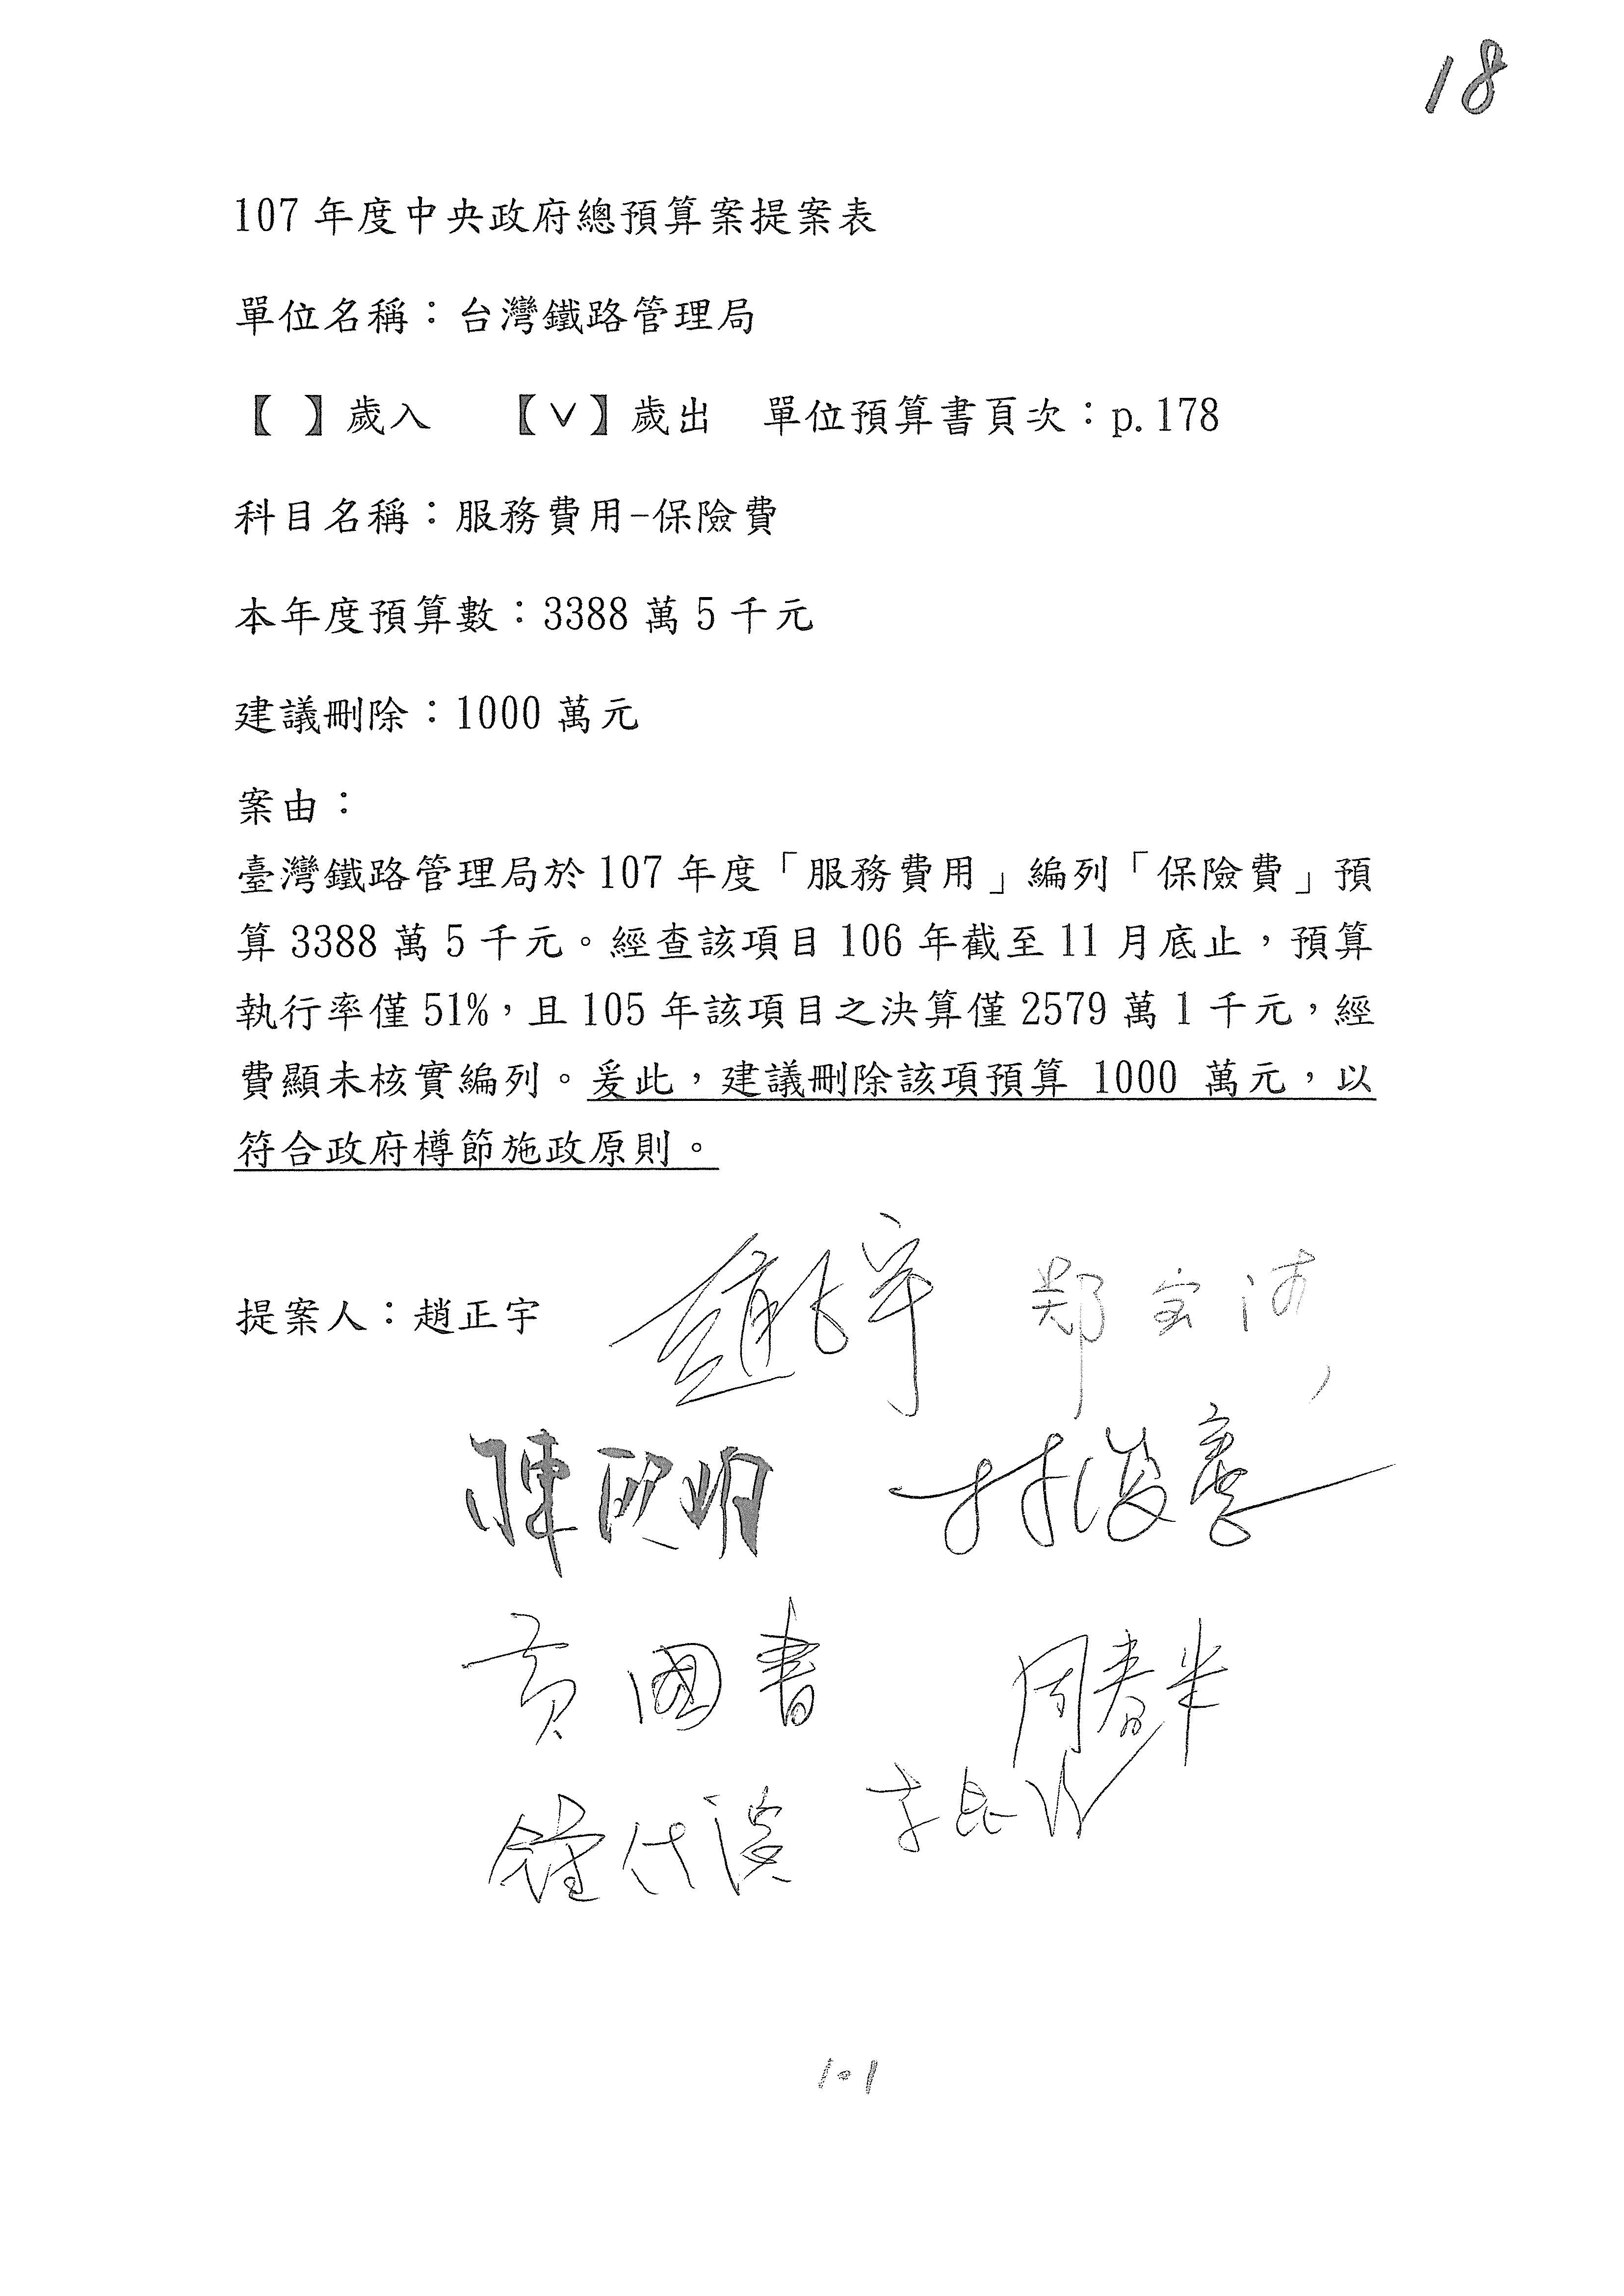 18
107 年度中央政府總預算案提案表
單位名稱：台灣鐵路管理局
【 】歲入 【∨】歲出 單位預算書頁次：p.178
科目名稱：服務費用-保險費
本年度預算數：3388 萬 5 千元
建議刪除：1000 萬元
案由：
臺灣鐵路管理局於 107 年度「服務費用」編列「保險費」預
算 3388 萬 5 千元。經查該項目 106 年截至 11 月底止，預算
執行率僅 51%，且 105 年該項目之決算僅 2579 萬 1 千元，經
費顯未核實編列。爰此，建議刪除該項預算 1000 萬元，以
符合政府樽節施政原則。
提案人：趙正宇 趙正宇 鄭宝清
陳歐珀 林俊憲
黃國書 周春米
鍾佳濱 李昆澤
101